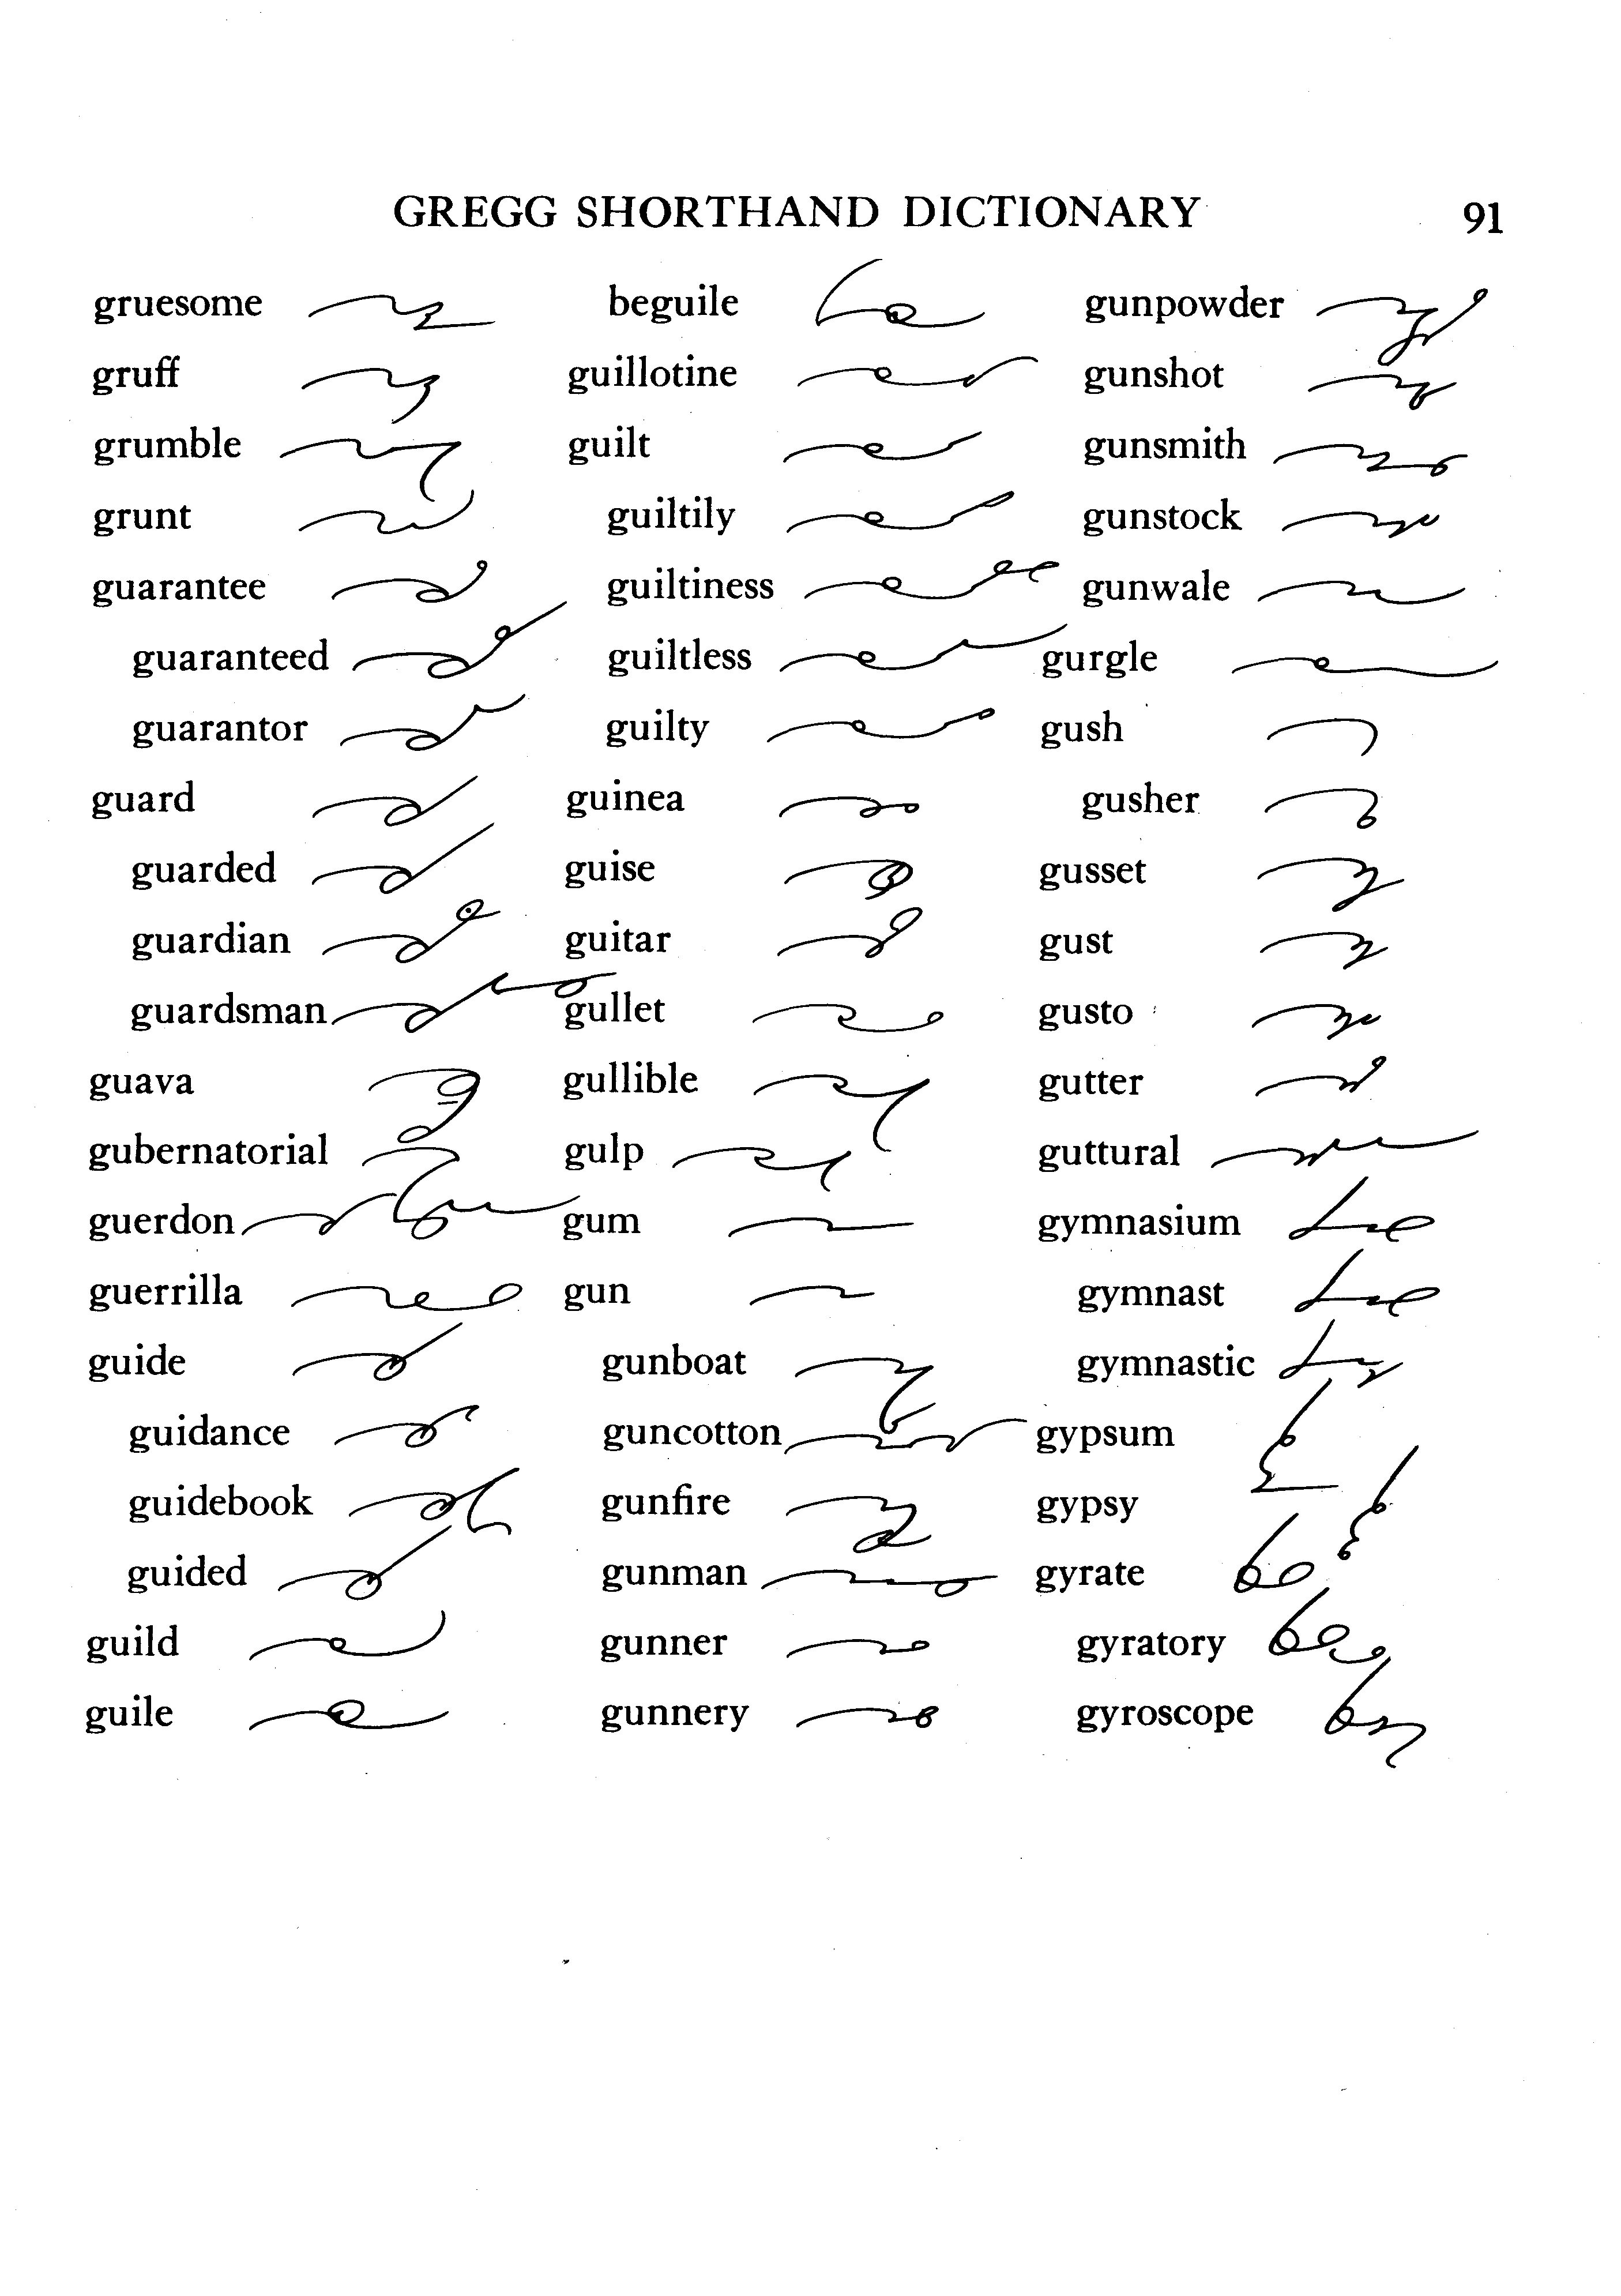 GREGG SHORTHAND DICTIONARY 91
gruesome
gruff
grumble
grunt
guarantee
guaranteed
guarantor
guard
guarded
guardian
guardsman
guava
gubernatorial
guerdon
guerrilla
guide
guidance
guidebook
guided
guild
guile
beguile
guillotine
guilt
guiltily
guiltiness
guiltless
guilty
guinea
guise
guitar
gullet
gullible
gulp
gum
gun
gunboat
guncotton
gunfire
gunman
gunner
gunnery
gunpowder
gunshot
gunsmith
gunstock
gunwale
gurgle
gush
gusher
gusset
gust
gusto
gutter
guttural
gymnasium
gymnast
gymnastic
gypsum
gypsy
gyrate
gyratory
gyroscope